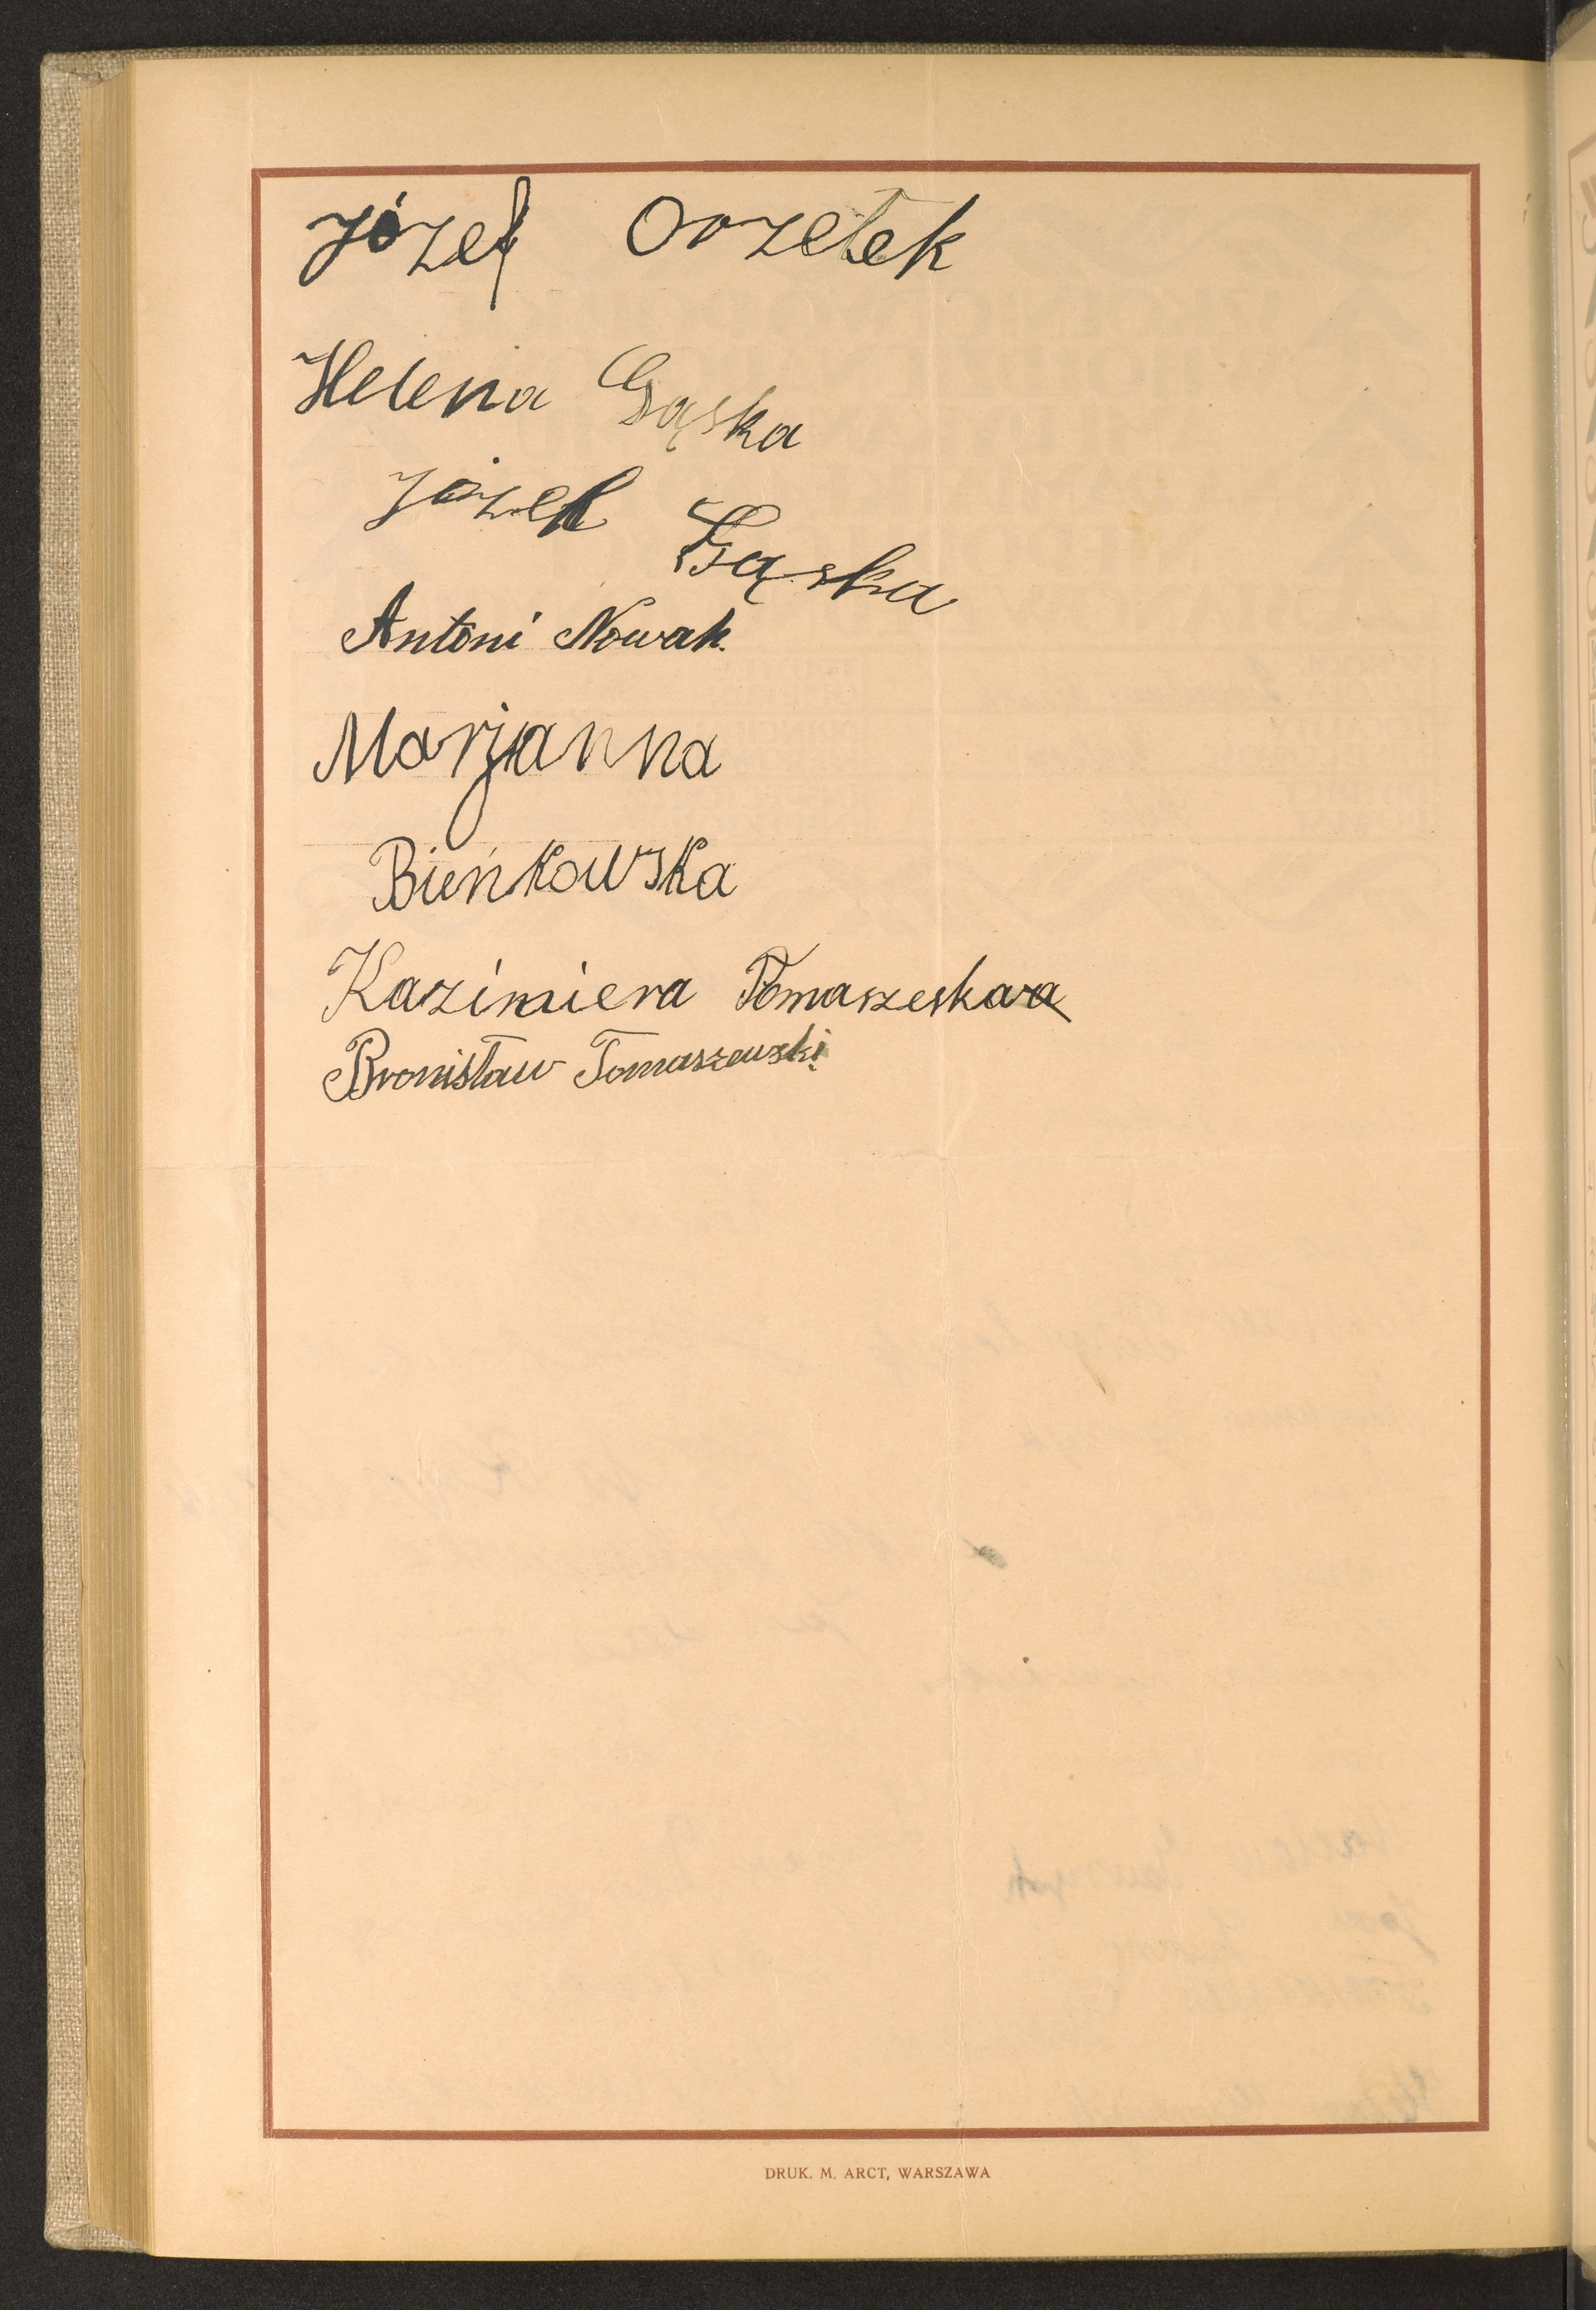 Józef Orzełek
Helena Gąska
Józef Gąska
Antoni Nowak.
Marjanna
Bieńkowska
Kazimiera Tomaszeskara
Bronisław Tomaszewski
DRUK. M. ARCT, WARSZAWA